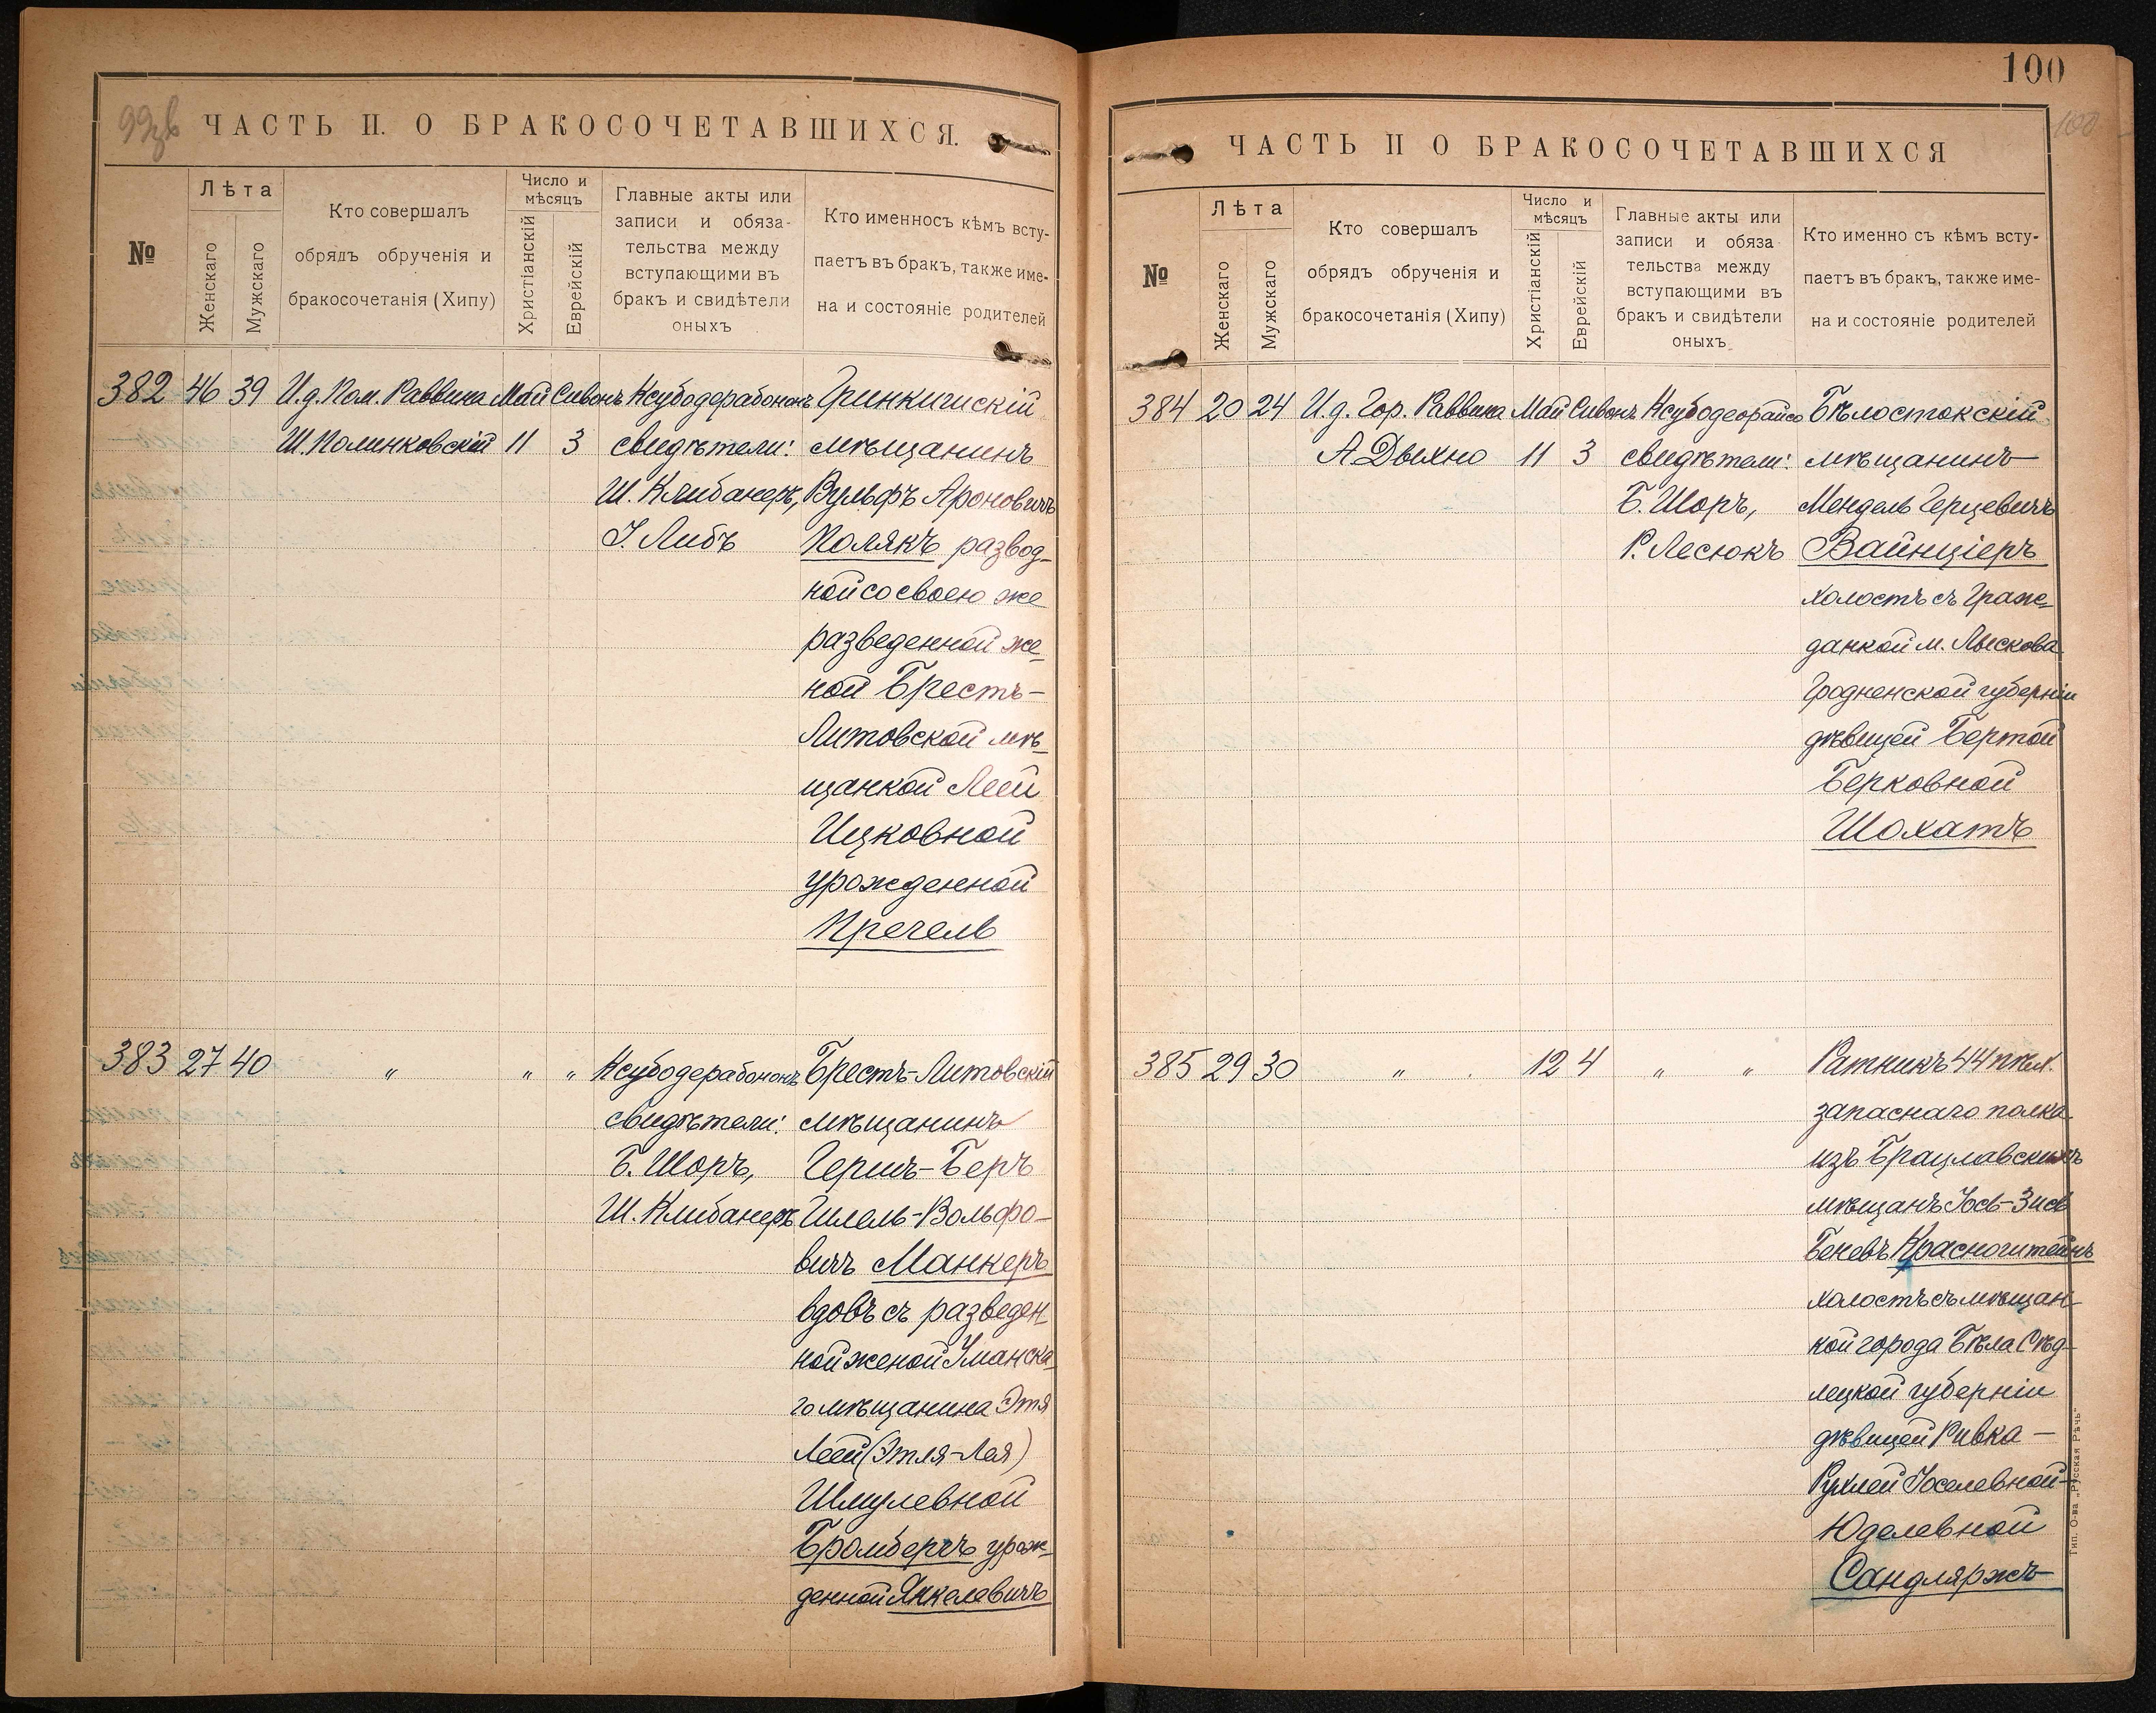 99зв
ЧАСТЬ II. О БРАКОСОЧЕТАВШИХСЯ.
№
Лѣта
Женскаго
Мужскаго
Кто совершалъ
обрядъ обрученія и
бракосочетанія (Хипу)
Число и
мѣсяцъ
Христіанскій
Еврейскій
Главные акты или
записи и обяза-
тельства между
вступающими въ
бракъ и свидѣтели
оныхъ
Кто именносъ кѣмъ всту-
паетъ въ бракъ, также име-
на и состояніе родителей
382 46 39 И.д. Пом. Раввина Май Сивонъ Ксубодерабононъ
Ш. Полинковскій 11 3 свидѣтели: мѣщанинъ
Ш. Клибанеръ, Вульфъ Ароновичъ
І. Либъ Полякъ развод-
ной со своею же
разведенной же-
ной Брестъ-
Литовской мѣ-
щанкой Леей
Ицковной
урожденной
Пречель
383 27 40 " " " Ксубодерабононъ Брестъ-Литовскій
свидѣтели: мѣщанинъ
Б. Шоръ, Гершъ-Беръ
Ш. Клибанеръ Гилель-Вольфо-
вичъ Манкеръ
вдовъ съ разведен
ной женой Уманска-
го мѣщанина Этя
Леей (Этля-Лея)
Шмулевной
Бромбергъ урож-
денной Янкелевичъ
100
100
ЧАСТЬ II О БРАКОСОЧЕТАВШИХСЯ
№
Лѣта
Женскаго
Мужскаго
Кто совершалъ
обрядъ обрученія и
бракосочетанія (Хипу)
Число и
мѣсяцъ
Христіанскій
Еврейскій
Главные акты или
записи и обяза
тельства между
вступающими въ
бракъ и свидѣтели
оныхъ
Кто именно съ кѣмъ всту-
паетъ въ бракъ, также име-
на и состояніе родителей
384 20 24 И.д. Гор. Раввина Май Сивонъ Ксубодеорайсо Бѣлостокскій
А Двыхно 11 3 свидѣтели: мѣщанинъ
Б. Шоръ, Мендель Герцевичъ
Р. Лесюкъ Вайнціеръ
холостъ съ Граж-
данкой м. Лыскова
Гродненской губерніи
дѣвицей Бертой
Берковной
Шохатъ
385 29 30 " 12 4 " " Ратникъ 44 пѣх.
запаснаго полка
изъ Брацлавскихъ
мѣщанъ Іось-Зись
Беневъ Красноштейнъ
холостъ съ мѣщан-
кой города Бѣла Сѣд-
лецкой губерніи
дѣвицей Ривка-
Рухлей Іоселевной-
Юделевной
Сандляржъ
Тип. О-ва „Русская Рѣчь“